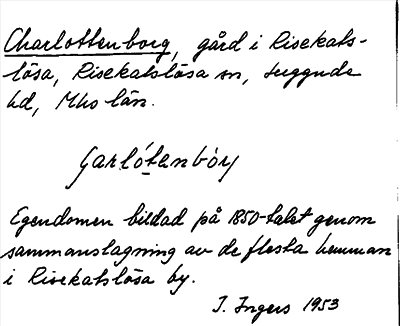 Charlottenborg, gård i Risekats-
lösa, Risekatslösa sn, Luggude
hd, Mho län.
Șarlótenbórj
Egendomen bildad på 1850-talet genom
sammanslagning av de flesta hemman
i Risekatslösa by.
I. Ingers 1953